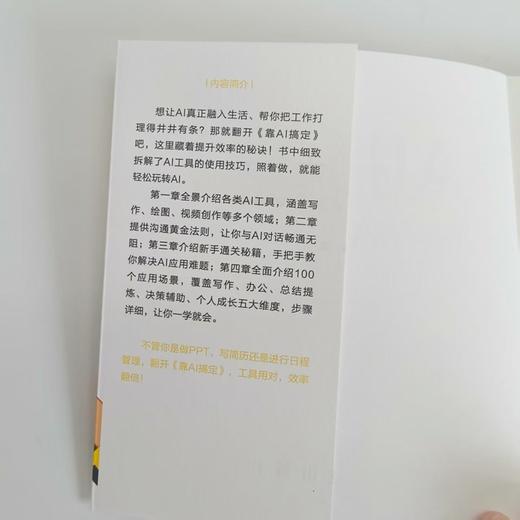 |内容简介|
想让AI真正融入生活、帮你把工作打
理得井井有条？那就翻开《靠AI搞定》
吧，这里藏着提升效率的秘诀！书中细致
拆解了AI工具的使用技巧，照着做，就能
轻松玩转AI。
第一章全景介绍各类AI工具，涵盖写
作、绘图、视频创作等多个领域；第二章
提供沟通黄金法则，让你与AI对话畅通无
阻；第三章介绍新手通关秘籍，手把手教
你解决AI应用难题；第四章全面介绍100
个应用场景，覆盖写作、办公、总结提
炼、决策辅助、个人成长五大维度，步骤
详细，让你一学就会。
不管你是做PPT、写简历还是进行日程
管理，翻开《靠AI搞定》，工具用对，效率
翻倍！